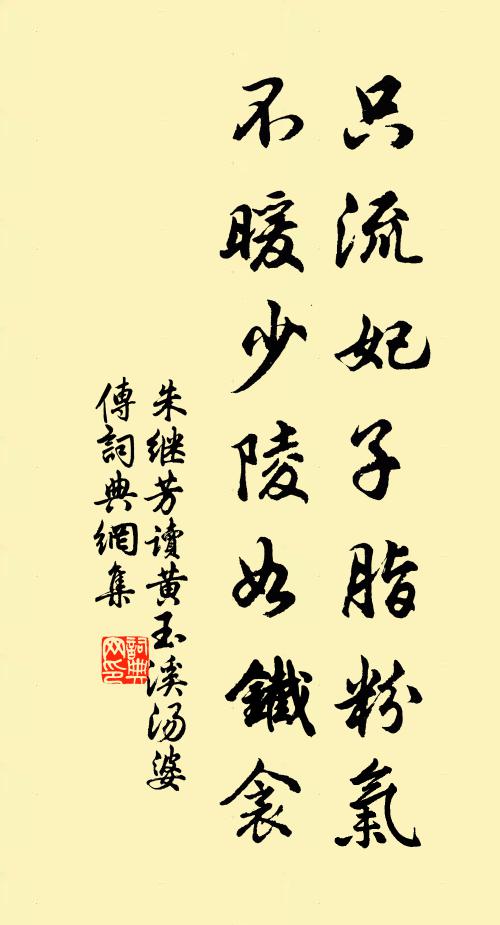 只流妃子脂粉氣
不暖少陵如鐵衾
朱继芳读黄玉溪汤婆
傳詞典網集
詞典網印